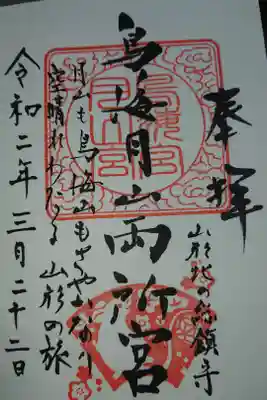 奉拝
山形北の総鎮守
鳥海月山両所宮
月山も鳥海山もさやかなり
空晴れわたる 山形の旅
令和二年三月二十二日